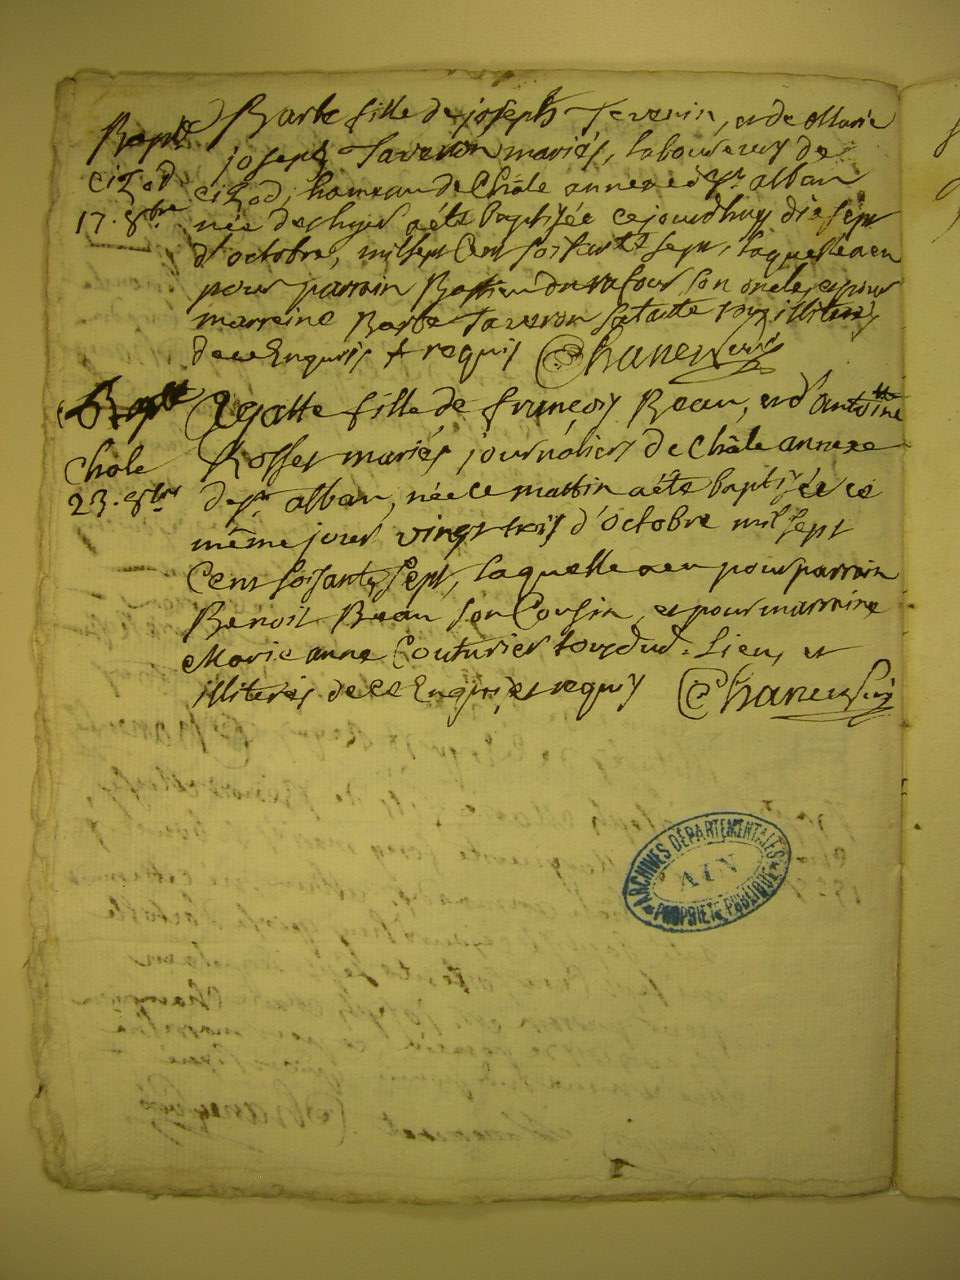 Bapte
Cizod
17. 8bre
Barbe fille de joseph Tevenin, et de Marie
joseph Taveron mariés, laboureurs de
Cizod, hameau de Châle annexe de St alban
née d'hyer a été baptisée ce jourdhuy dix sept
d'octobre, mil sept Cent soixante sept, laquelle a eu
pour parrain Bastien dufour son oncle, et pour
marreine Barbe Taveron sa tatte tous illiterés
de ce Enquis & requis Chanel curé
Bapte
Chale
23. 8bre
Agatte fille de françois Beau, et d'antoinette
Rosset mariés journaliers de Châle annexe
de st alban, née ce mattin a été baptisée ce
même jour vingt trois d'octobre mil sept
Cent soixante sept, laquelle a eu pour parrain
Benoit Beau son Cousin, et pour marraine
Marie anne Couturier tous dud. Lieu, et
illiterés de ce Enquis, et requis Chanel Curé
ARCHIVES DÉPARTEMENTALES
AIN
PROPRIÉTÉ PUBLIQUE